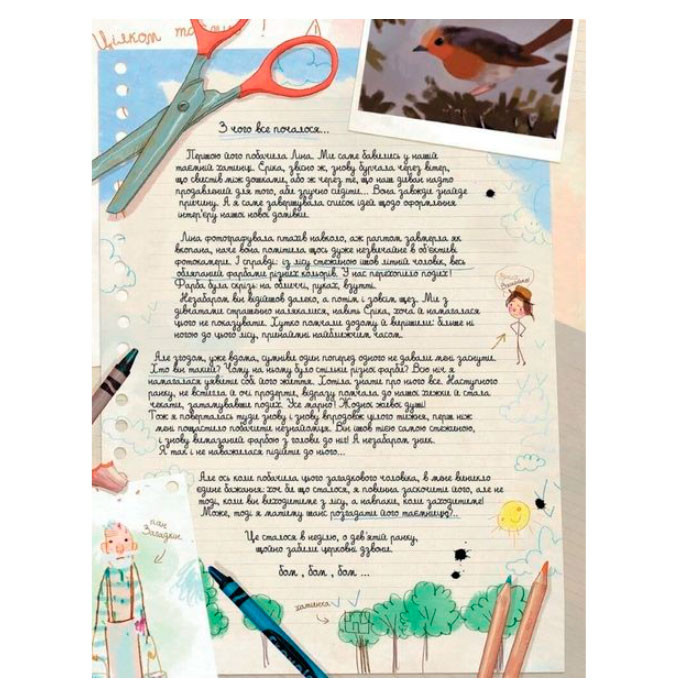 Цілком та !
З чого все почалося...
Першою його побачила Ліна. Ми саме бавились у нашій
таємній хатинці. Еріка, звісно ж, знову бурчала через вітер,
що свистів між дошками, або ж через те, що наш диван надто
продавлений для того, аби зручно сидіти... Вона завжди знайде
причину. А я саме завершувала список ідей щодо оформлення
інтер'єру нашої нової домівки.
Ліна фотографувала птахів навколо, аж раптом завмерла як
вкопана, наче вона помітила щось дуже незвичайне в об'єктиві
фотокамери. І справді: із лісу стежиною йшов літній чоловік, весь
обляпаний фарбами різних кольорів. У нас перехопило подих!
Фарба була скрізь: на обличчі, руках, взутті.
Незабаром він відійшов далеко, а потім і зовсім щез. Ми з
дівчатами страшенно налякалися, навіть Еріка, хоча й намагалася
цього не показувати. Хутко помчали додому й вирішили: більше ні
ногою до цього лісу, принаймні найближчим часом.
Але згодом, уже вдома, сумніви один поперед одного не давали мені заснути.
Хто він такий? Чому на ньому було стільки різної фарби? Всю ніч я
намагалася уявити собі його життя. Хотіла знати про нього все. Наступного
ранку, не встигла й очі продерти, відразу помчала до нашої хижки й стала
чекати, затамувавши подих. Усе марно! Жодної живої душі!
Тож я поверталась туди знову і знову впродовж цілого тижня, перш ніж
мені пощастило побачити незнайомця. Він ішов тією самою стежиною,
і знову вимазаний фарбою з голови до ніг! А незабаром зник.
Я так і не наважилася підійти до нього...
Але ось коли побачила цього загадкового чоловіка, в мене виникло
єдине бажання: хоч би що сталося, я повинна заскочити його, але не
тоді, коли він виходитиме з лісу, а навпаки, коли заходитиме!
Може, тоді я матиму шанс розгадати його таємницю?..
Це сталося в неділю, о дев'ятій ранку,
щойно забили церковні дзвони.
бом, бом, бом...
пан
Загадка
хатинка